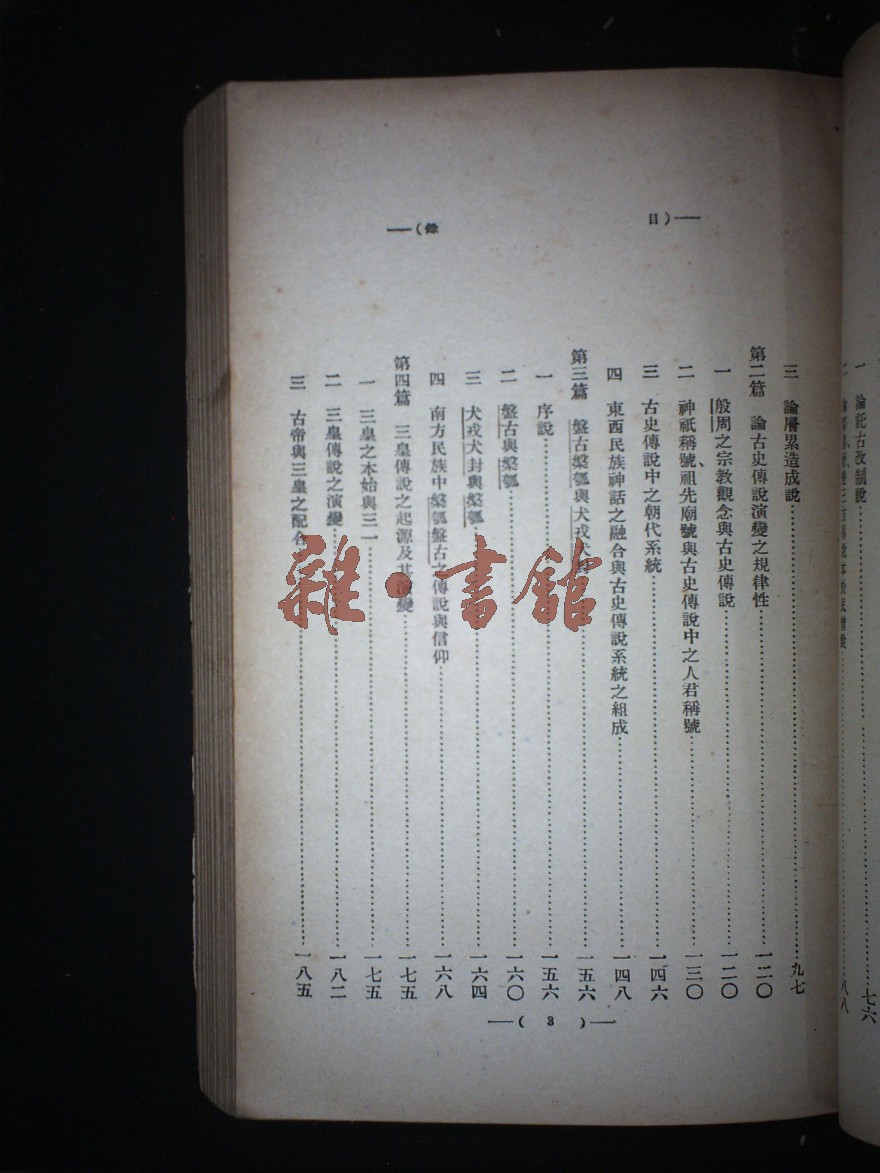 一　論託古改制說……七六
八八
目）—
—（錄
三　論層累造成說……九七
第二篇　論古史傳說演變之規律性……一二〇
一　殷周之宗教觀念與古史傳說……一二〇
二　神祇稱號、祖先廟號與古史傳說中之人君稱號……一三〇
三　古史傳說中之朝代系統……一四六
四　東西民族神話之融合與古史傳說系統之組成……一四八
第三篇　盤古槃瓠與犬戎犬封……一五六
一　序說……一五六
二　盤古與槃瓠……一六〇
三　犬戎犬封與槃瓠……一六四
四　南方民族中槃瓠盤古之傳說與信仰……一六八
第四篇　三皇傳說之起源及其演變……一七五
一　三皇之本始與三一……一七五
二　三皇傳說之演變……一八二
三　古帝與三皇之配合……一八五
—（3）—
雜·書館